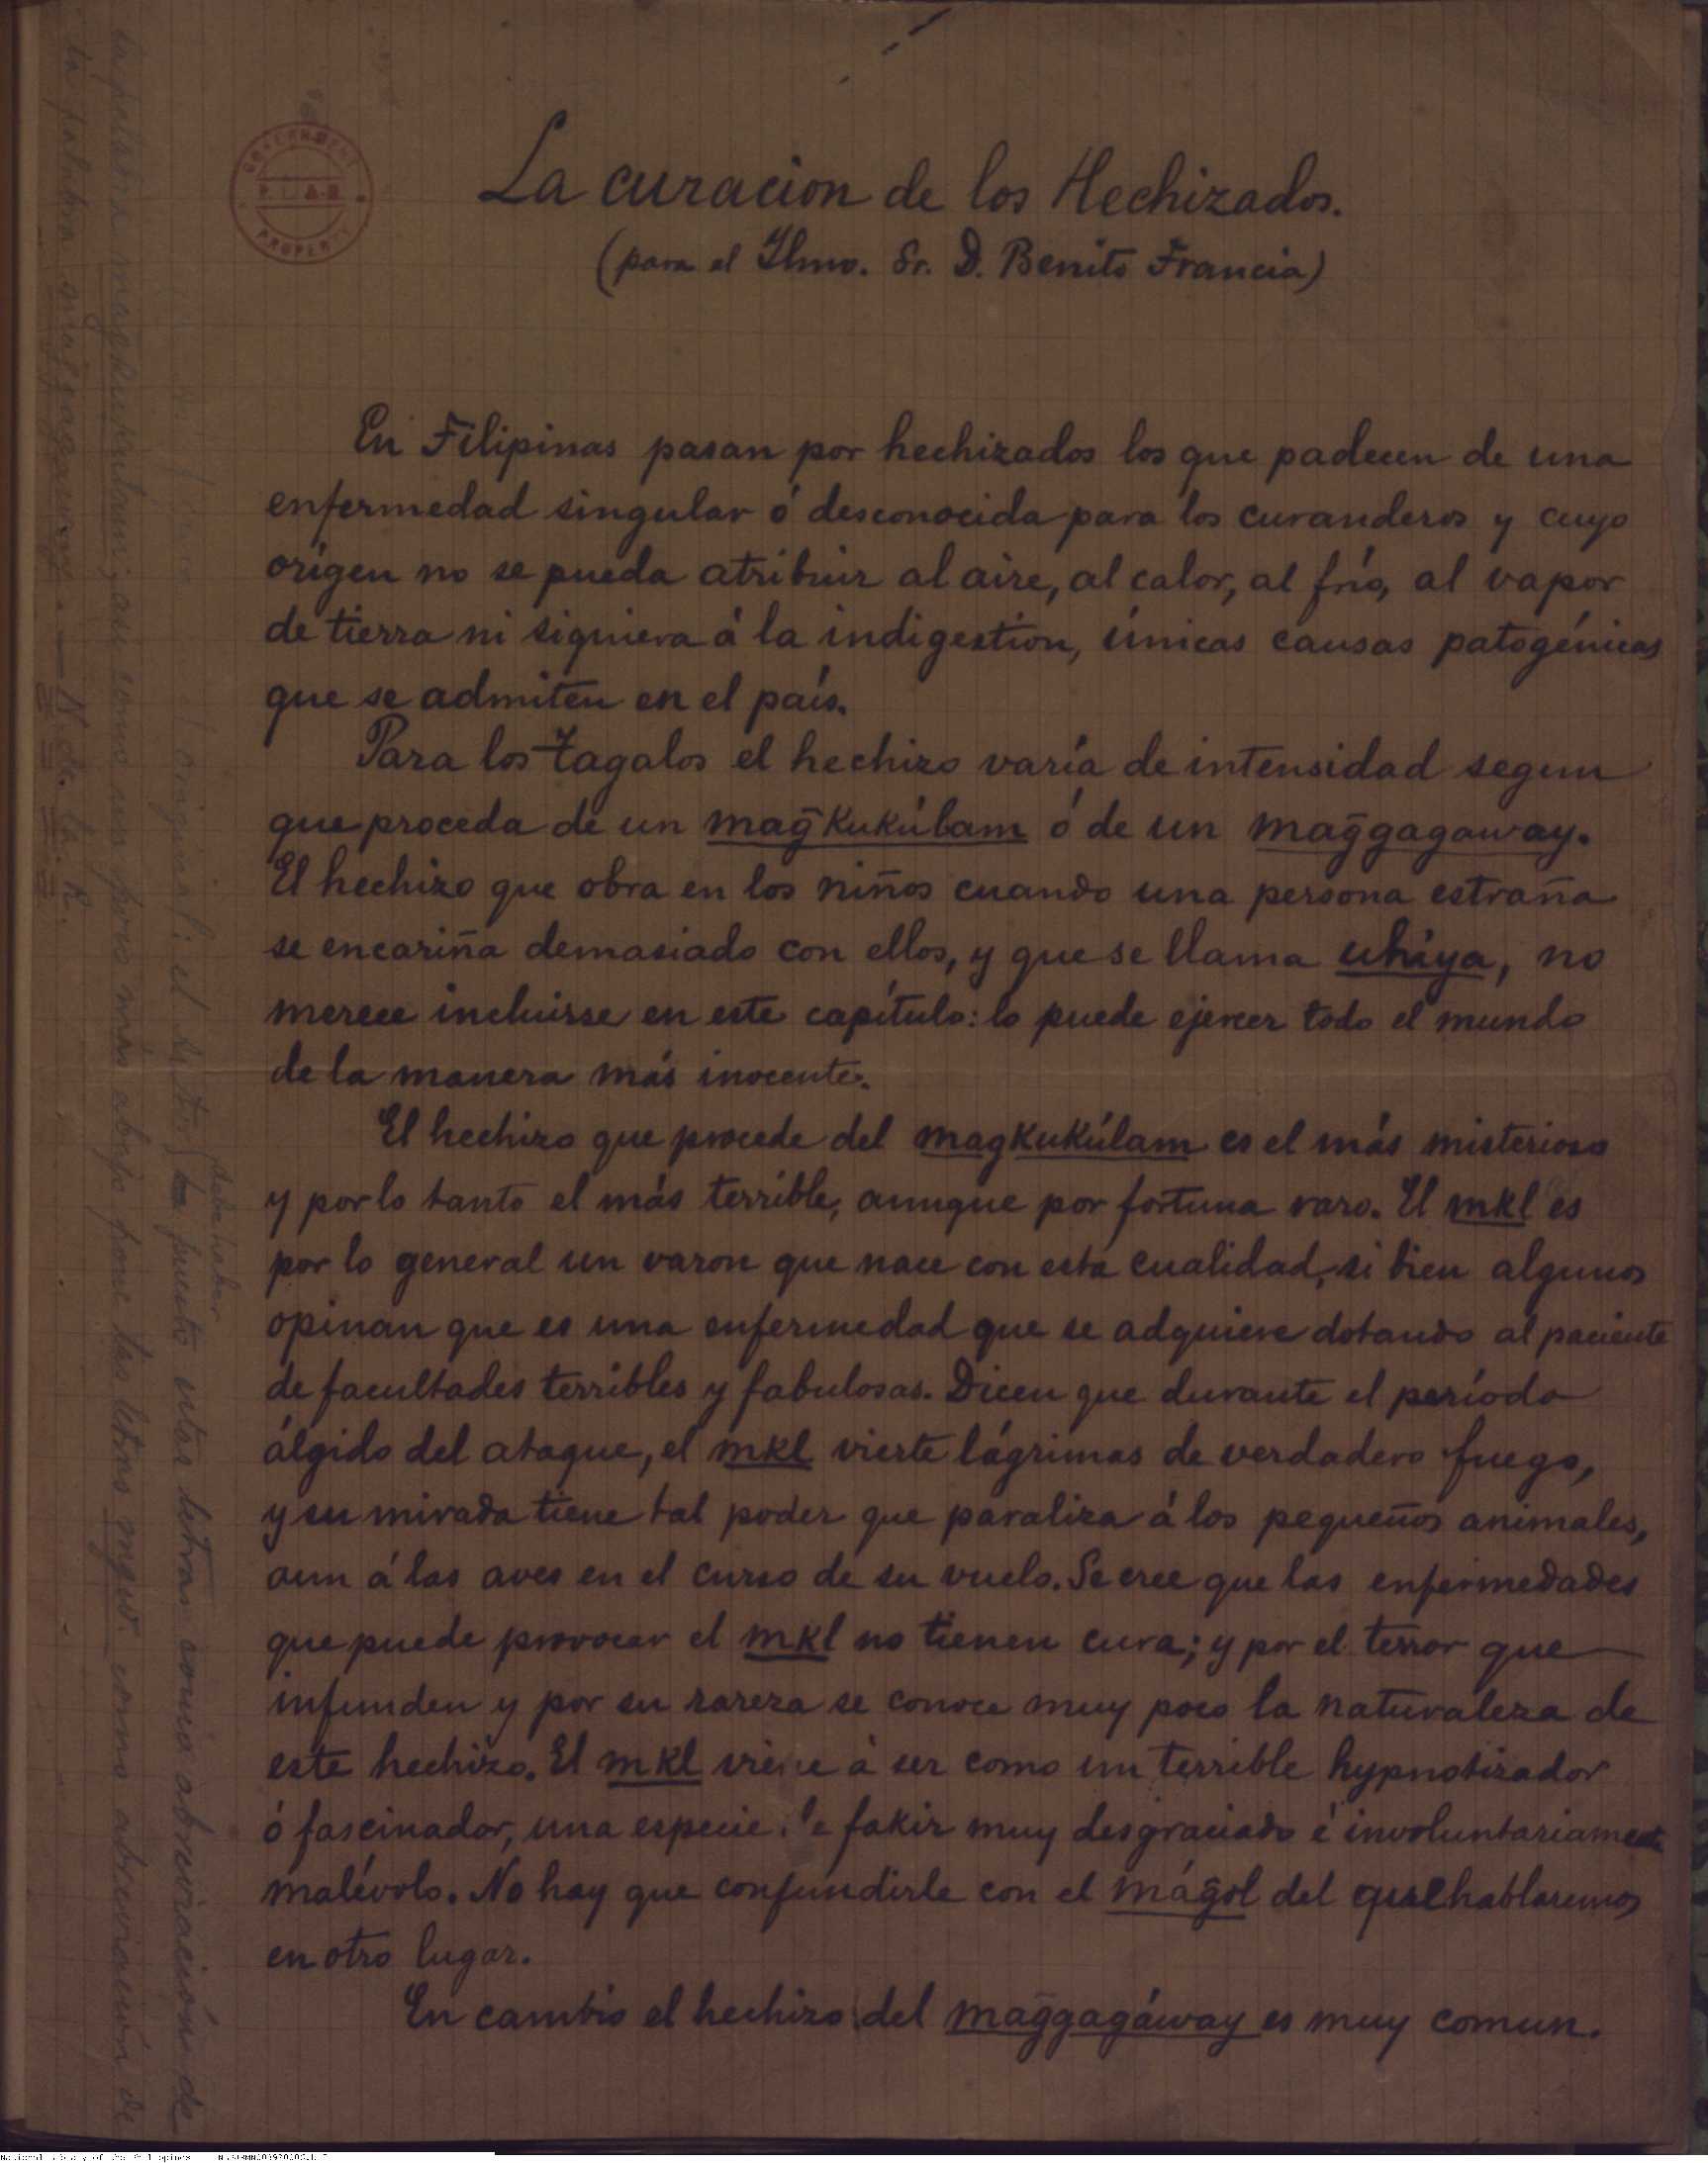 La curacion de los Hechizados.
(para el Ilmo. Sr. D. Benito Francia)
GOVERNMENT
PROPERTY
En Filipinas pasan por hechizados los que padecen de una
enfermedad singular ó desconocida para los curanderos y cuyo
orígen no se pueda atribuir al aire, al calor, al frío, al vapor
de tierra ni siquiera á la indigestion, únicas causas patogénicas
que se admiten en el país.
Para los Tagalos el hechizo varía de intensidad segun
que proceda de un mag̃kukúlam ó de un mag̃gagaway.
El hechizo que obra en los niños cuando una persona estraña
se encariña demasiado con ellos, y que se llama uhiya, no
merece incluirse en este capítulo: lo puede ejercer todo el mundo
de la manera más inocente.
El hechizo que procede del magkukúlam es el más misterioso
y por lo tanto el más terrible, aunque por fortuna raro. El mkl es
por lo general un varon que nace con esta cualidad, si bien algunos
opinan que es una enfermedad que se adquiere dotando al paciente
de facultades terribles y fabulosas. Dicen que durante el período
álgido del ataque, el mkl vierte lágrimas de verdadero fuego,
y su mirada tiene tal poder que paraliza á los pequeños animales,
aun á las aves en el curso de su vuelo. Se cree que las enfermedades
que puede provocar el mkl no tienen cura; y por el terror que
infunden y por su rareza se conoce muy poco la naturaleza de
este hechizo. El mkl viene á ser como un terrible hypnotizador
ó fascinador, una especie de fakir muy desgraciado é involuntariamente
malévolo. No hay que confundirle con el mág̃ol del que hablaremos
en otro lugar.
En cambio el hechizo del mag̃gagáway es muy comun.
original: el
debe haber
puesto estas letras como abreviación de
la palabra magkukulam; asi como un poco más abajo pone las letras como abreviación de
la palabra
National Library of the Philippines